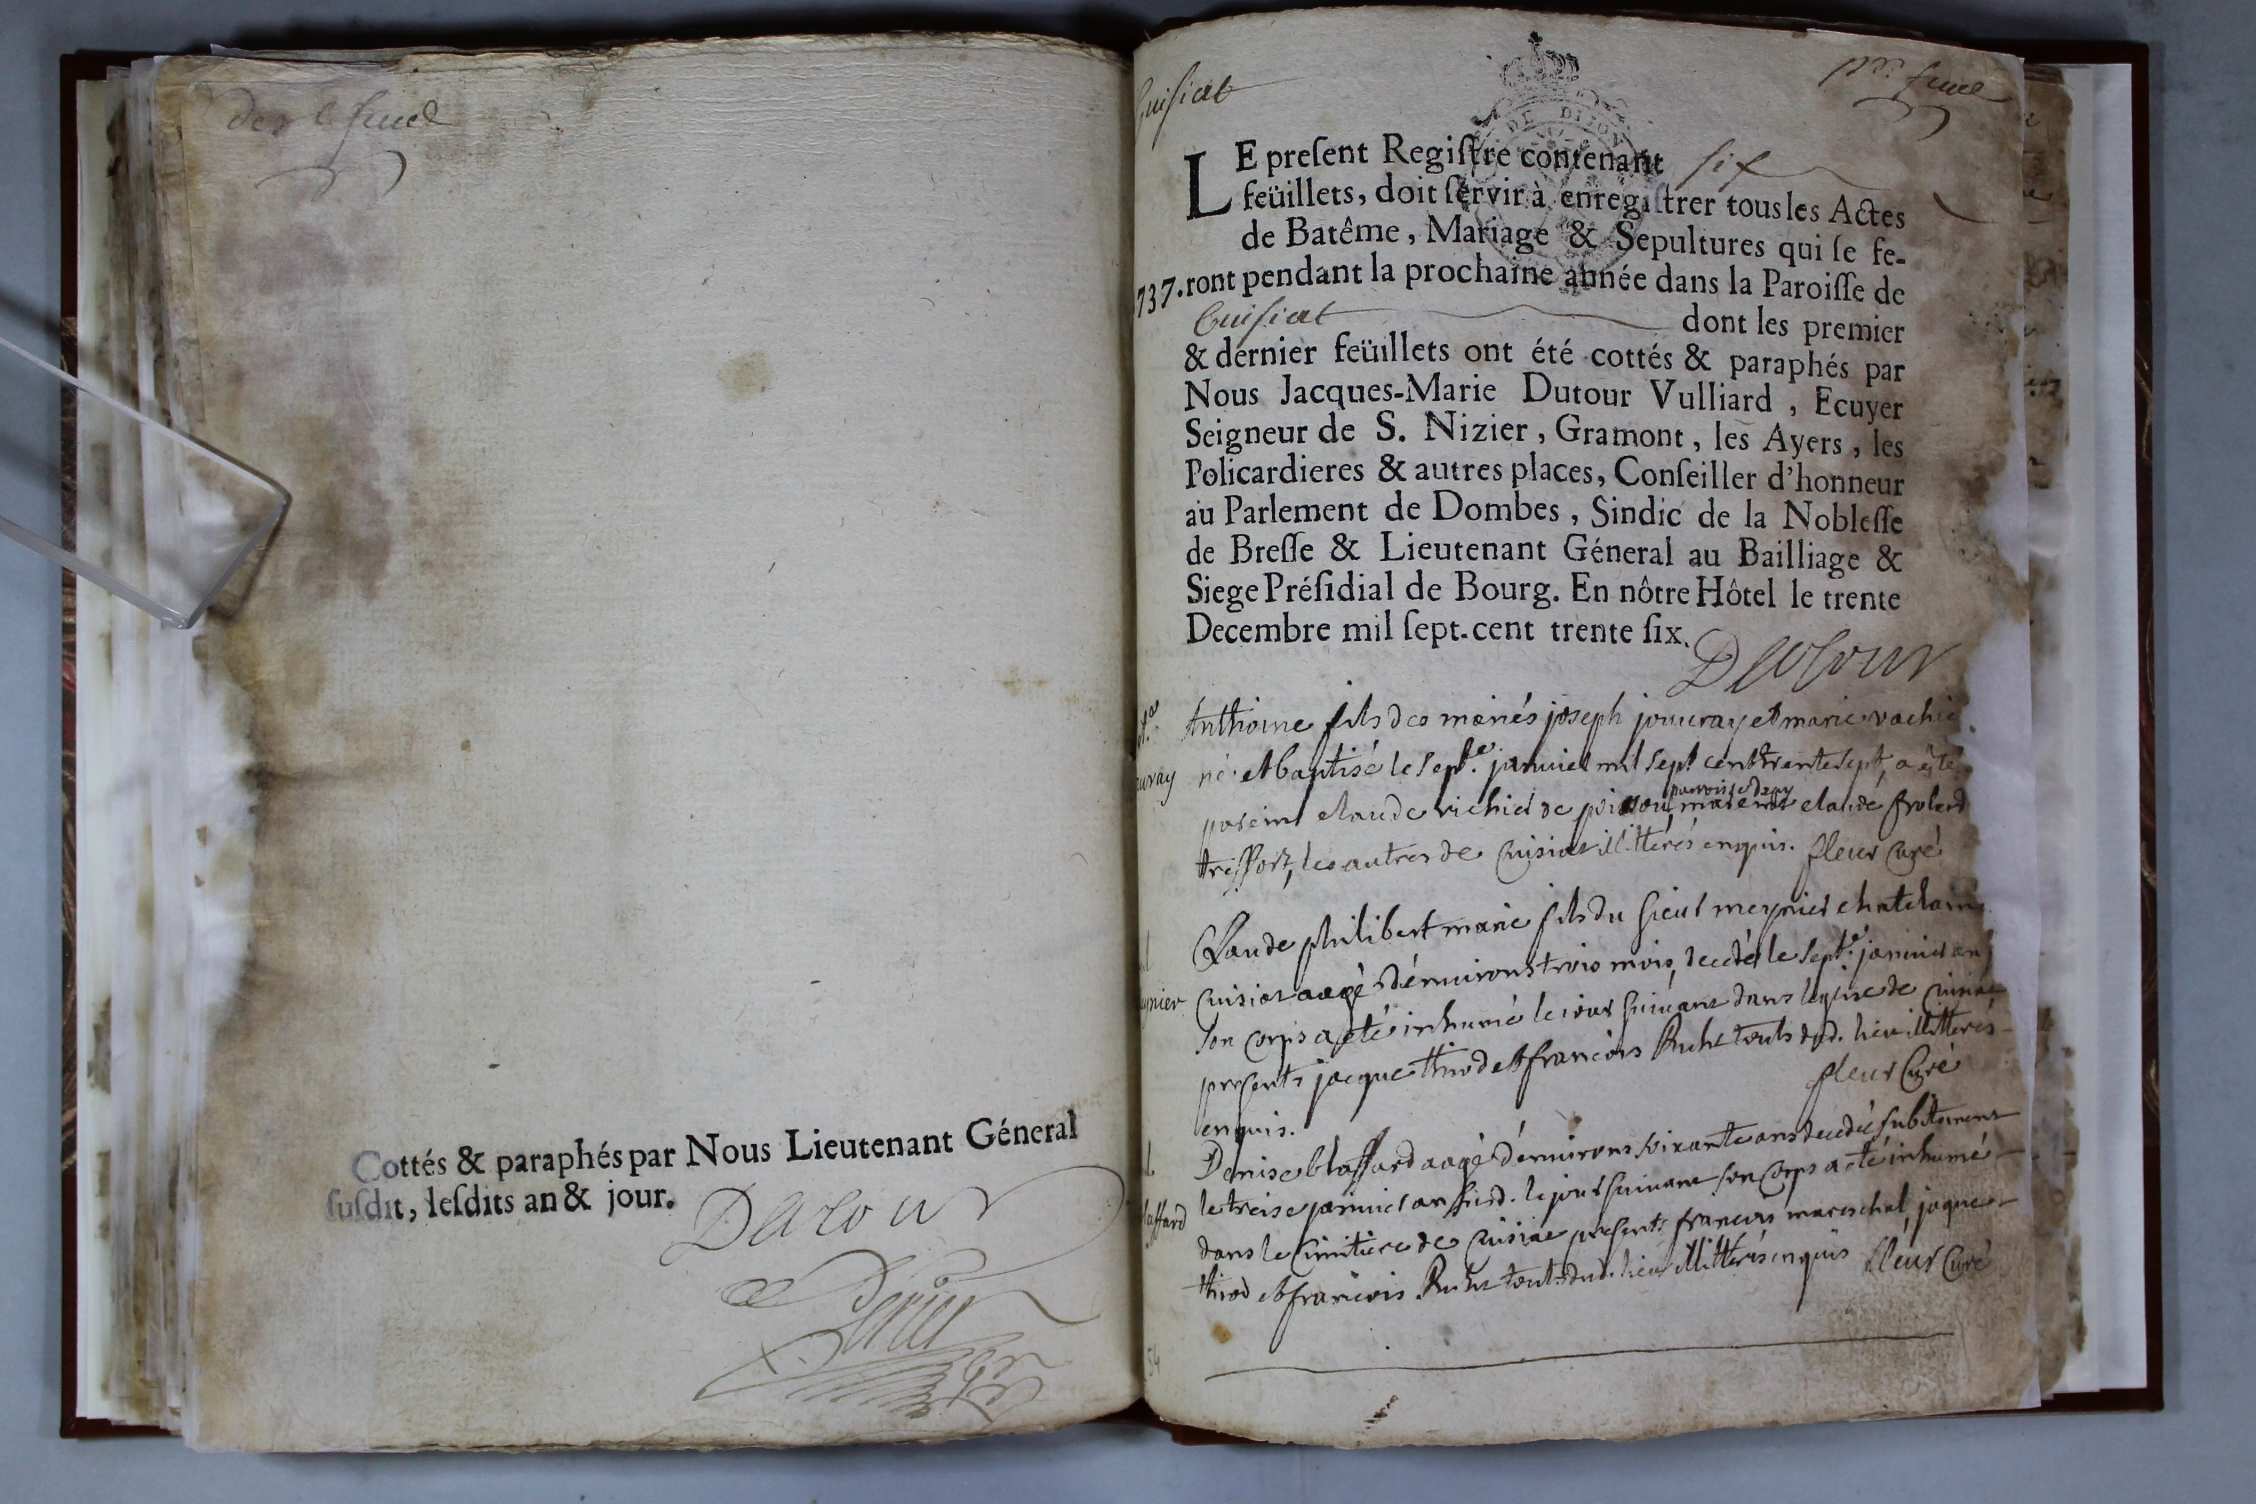 der.e feuel
Cottés & paraphés par Nous Lieutenant Géneral
ſuſdit, leſdits an & jour.
Dutour
Cuisiat
pre. feuel
DE DIJON
LE preſent Regiſtre contenant six
feüillets, doit ſervir à enregiſtrer tous les Actes
de Batême, Mariage & Sepultures qui ſe fe-
1737. ront pendant la prochaine année dans la Paroiſſe de
Cuisiat dont les premier
& dernier feüillets ont été cottés & paraphés par
Nous Jacques-Marie Dutour Vulliard, Ecuyer
Seigneur de S. Nizier, Gramont, les Ayers, les
Policardieres & autres places, Conſeiller d'honneur
au Parlement de Dombes, Sindic de la Nobleſſe
de Breſſe & Lieutenant Géneral au Bailliage &
Siege Préſidial de Bourg. En nôtre Hôtel le trente
Decembre mil ſept-cent trente ſix.
Dutour
Anthoine fils des mariés joseph jouuray et marie vachie
né et baptisé le sept.e januier mil sept cent trente sept, a été
parein claude richier de poisou, paroisse dzay mareine claude frolard
treffort, les autres de Cuisiat illittérés enquis. fleur curé
Claude philibert marie fils du sieur meynier chatelain
Cuisiat aagé d'enuirons trois mois, decedé le sept.e januier an
son corps a eté inhumé le iour suiuant dans leglise de Cuisiat
presents jacque thiod et francois Ruht touts dud. lieu illitterés
enquis. fleur Curé
Denise blaffard aagé d'enuirons soixante ans decedé subitement
le treise januier an susd. le jour suiuant son corps a eté inhumé
dans le cimitiere de Cuisiat presents francois mareschal, jaque
thiod et francois Ruht touts dud. lieu illitterés enquis fleur Curé
54